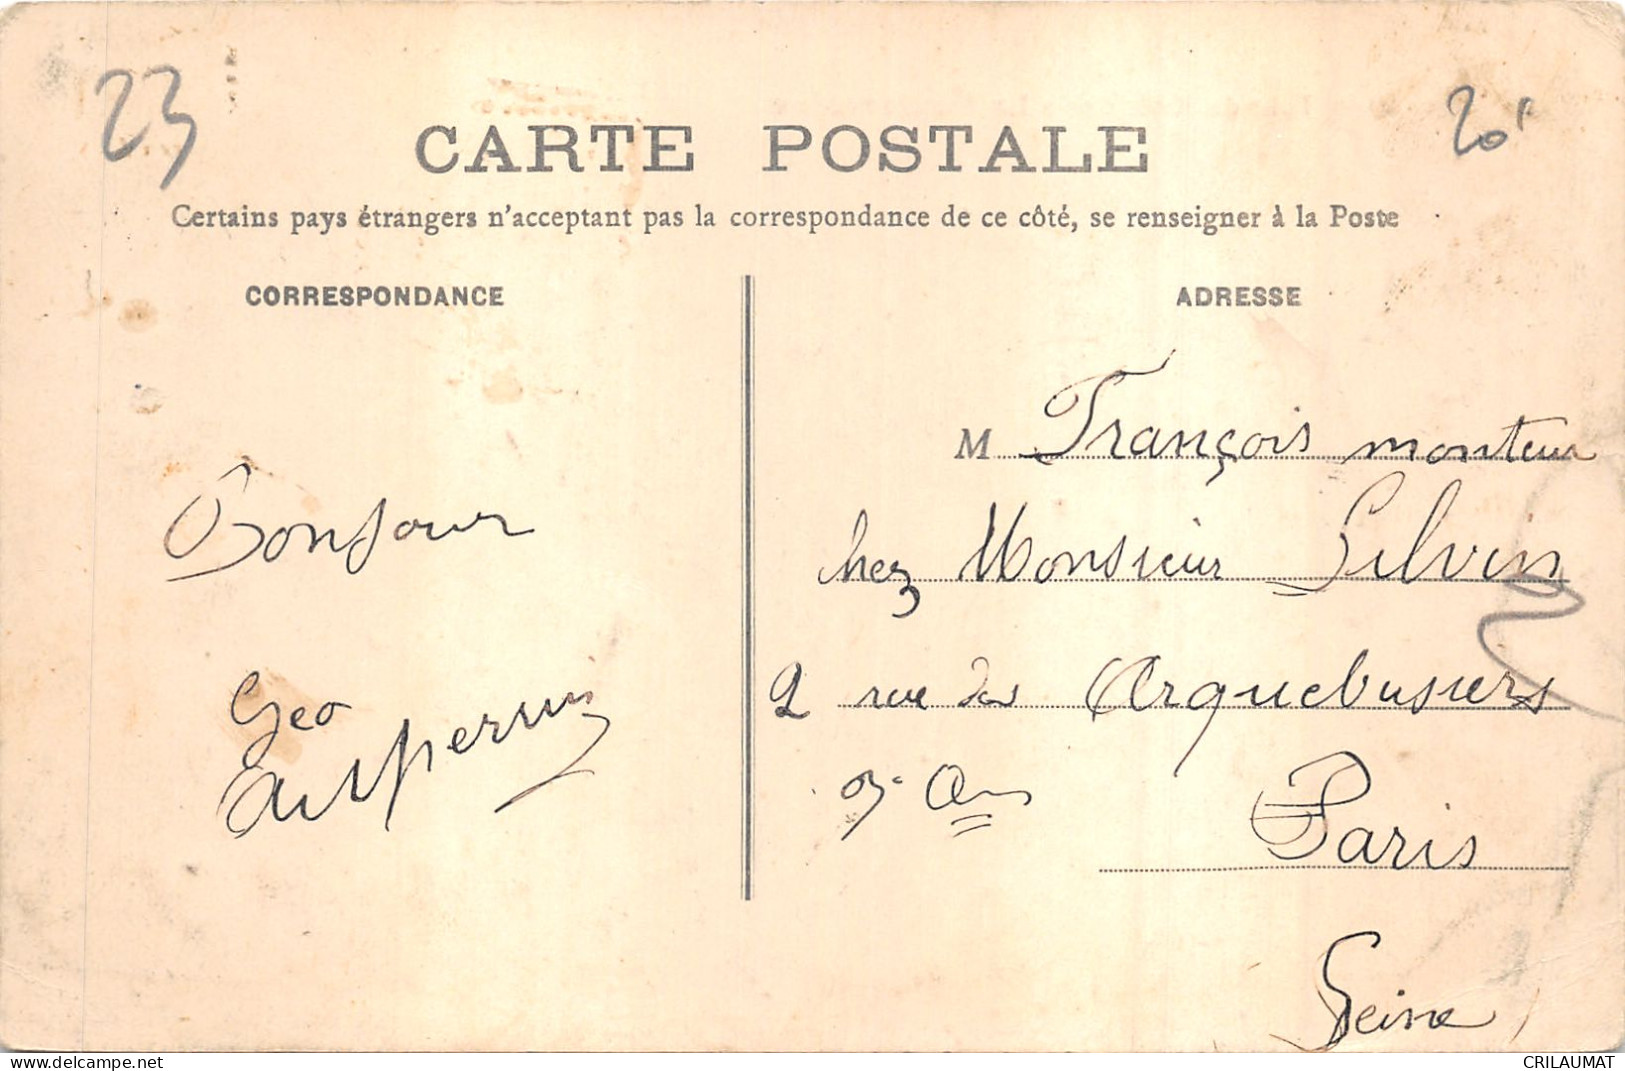 23
20
CARTE POSTALE
Certains pays étrangers n'acceptant pas la correspondance de ce côté, se renseigner à la Poste
CORRESPONDANCE
Bonjour
Geo
ADRESSE
M François monteur
chez Monsieur Silvin
2 rue des Arquebusiers
Paris
Seine
www.delcampe.net
CRILAUMAT